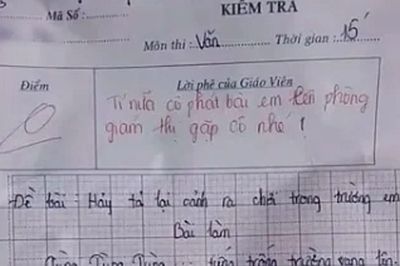 KIỂM TRA
Mã Số:
Môn thi: Văn Thời gian: 15'
Điểm
0
Lời phê của Giáo Viên
Tí nữa cô phát bài em lên phòng
giám thị gặp cô nhé!
Đề bài: Hãy tả lại cảnh ra chơi trong trường em
Bài làm
Tùng Tùng Tùng... tiếng trống trường vang lên.